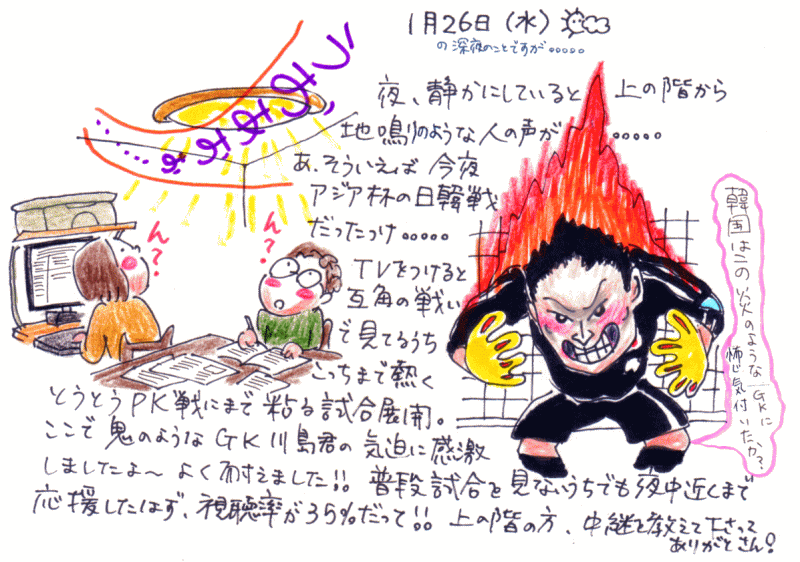 1月26日(水)
の深夜のことですが.....
夜、静かにしていると 上の階から
地鳴りのような人の声が.....
あ、そういえば 今夜
アジア杯の日韓戦
だったっけ.....
TVをつけると
互角の戦い
で見てるうち
こっちまで熱く
とうとうPK戦にまで粘る試合展開。
ここで鬼のようなGK川島君の気迫に感激
しましたよ〜 よく耐えました!! 普段試合を見ないうちでも夜中近くまで
応援したはず、視聴率が35%だって!! 上の階の方、中継を教えて下さって
ありがとさん!
ん?
ん?
韓国はこの炎のようなGKに
怖じ気付いたか?